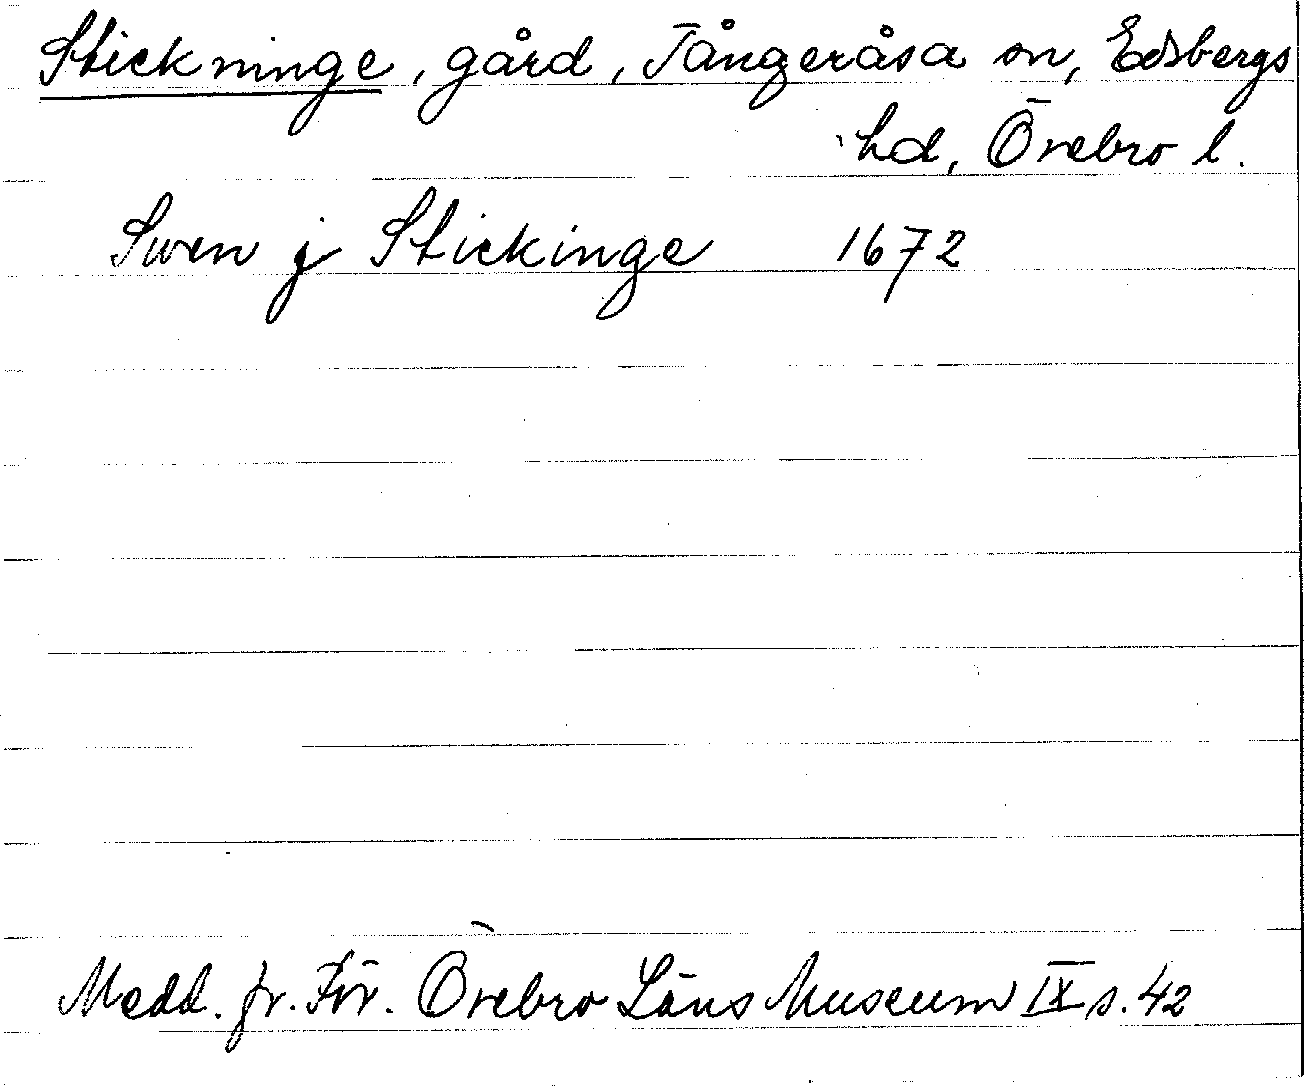 Stickninge, gård, Tångeråsa sn, Edsbergs
hd, Örebro l.
Swen j Stickinge 1672
Medd. fr. För. Örebro Läns Museum IX s. 42